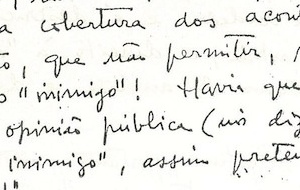 a cobertura dos acon
ão, que não permitir,
o "inimigo"! Havia que
opinião pública (nós diz
inimigo", assim preten